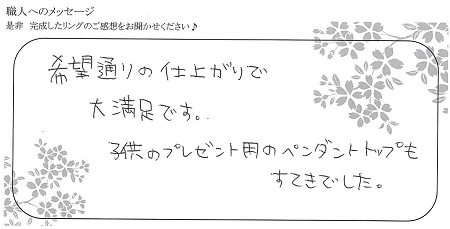 職人へのメッセージ
是非 完成したリングのご感想をお聞かせください♪
希望通りの仕上がりで
大満足です。
子供のプレゼント用のペンダントトップも
すてきでした。